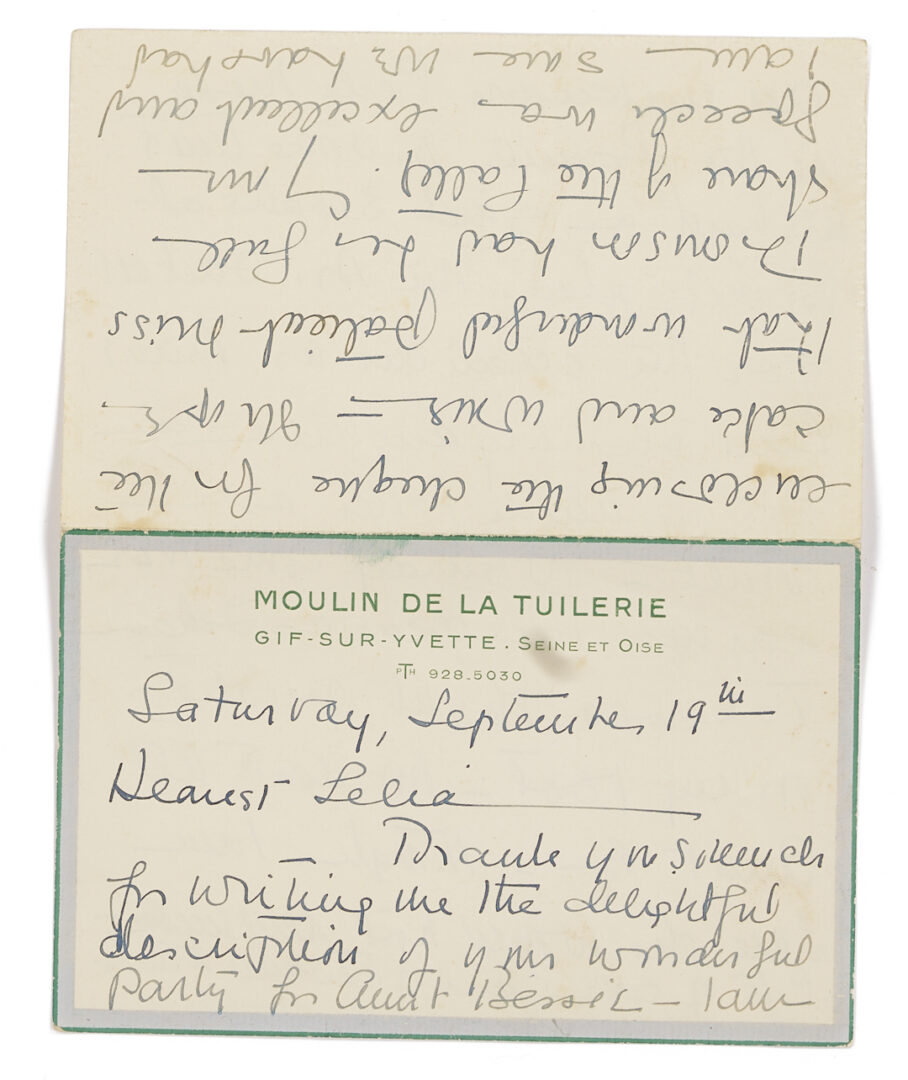 MOULIN DE LA TUILERIE
GIF-SUR-YVETTE. SEINE ET OISE
PTH 928.5030
Saturday, September 19th
Dearest Lelia
Thank you so much
for writing me the delightful
description of your wonderful
party for Aunt Bessie – I am
enclosing the cheque for the
cake and wine = I hope
that wonderful patient Miss
had her full
share of the . Your
speech was excellent and
I am sure we have had